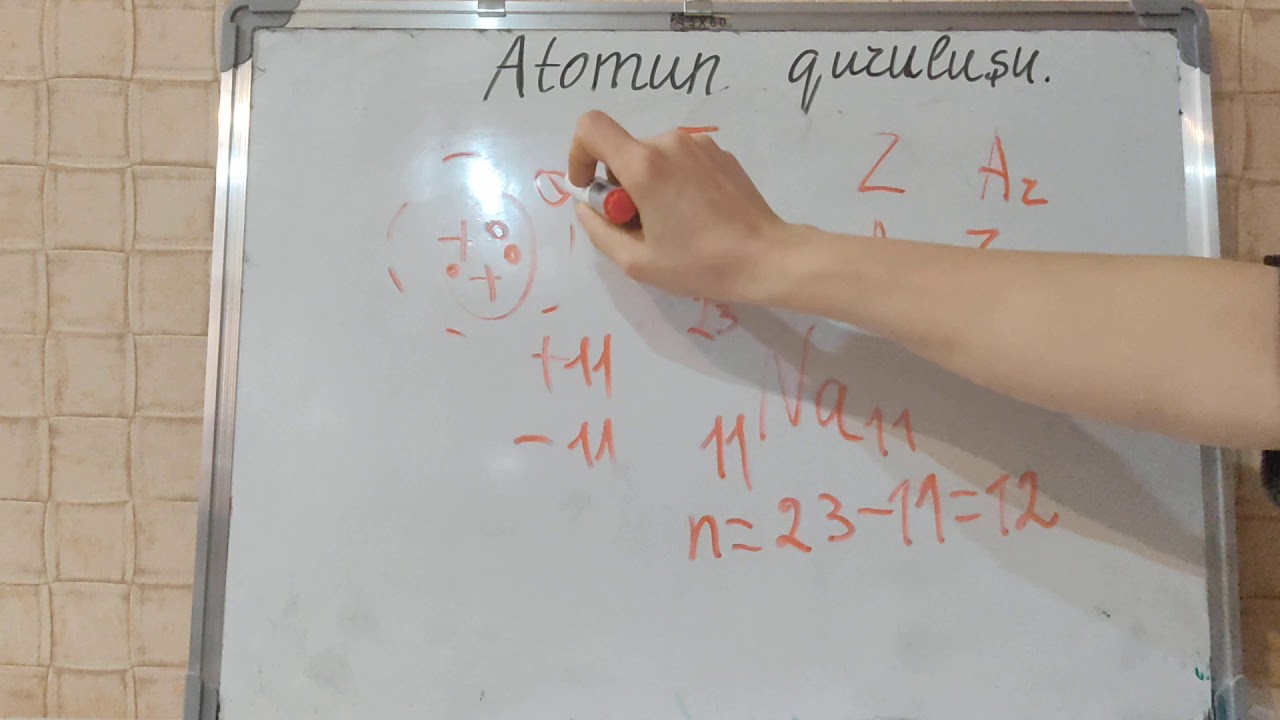 Atomun quruluşu.
Z Ar
23
+11
Na
11 11
-11
n=23-11=12